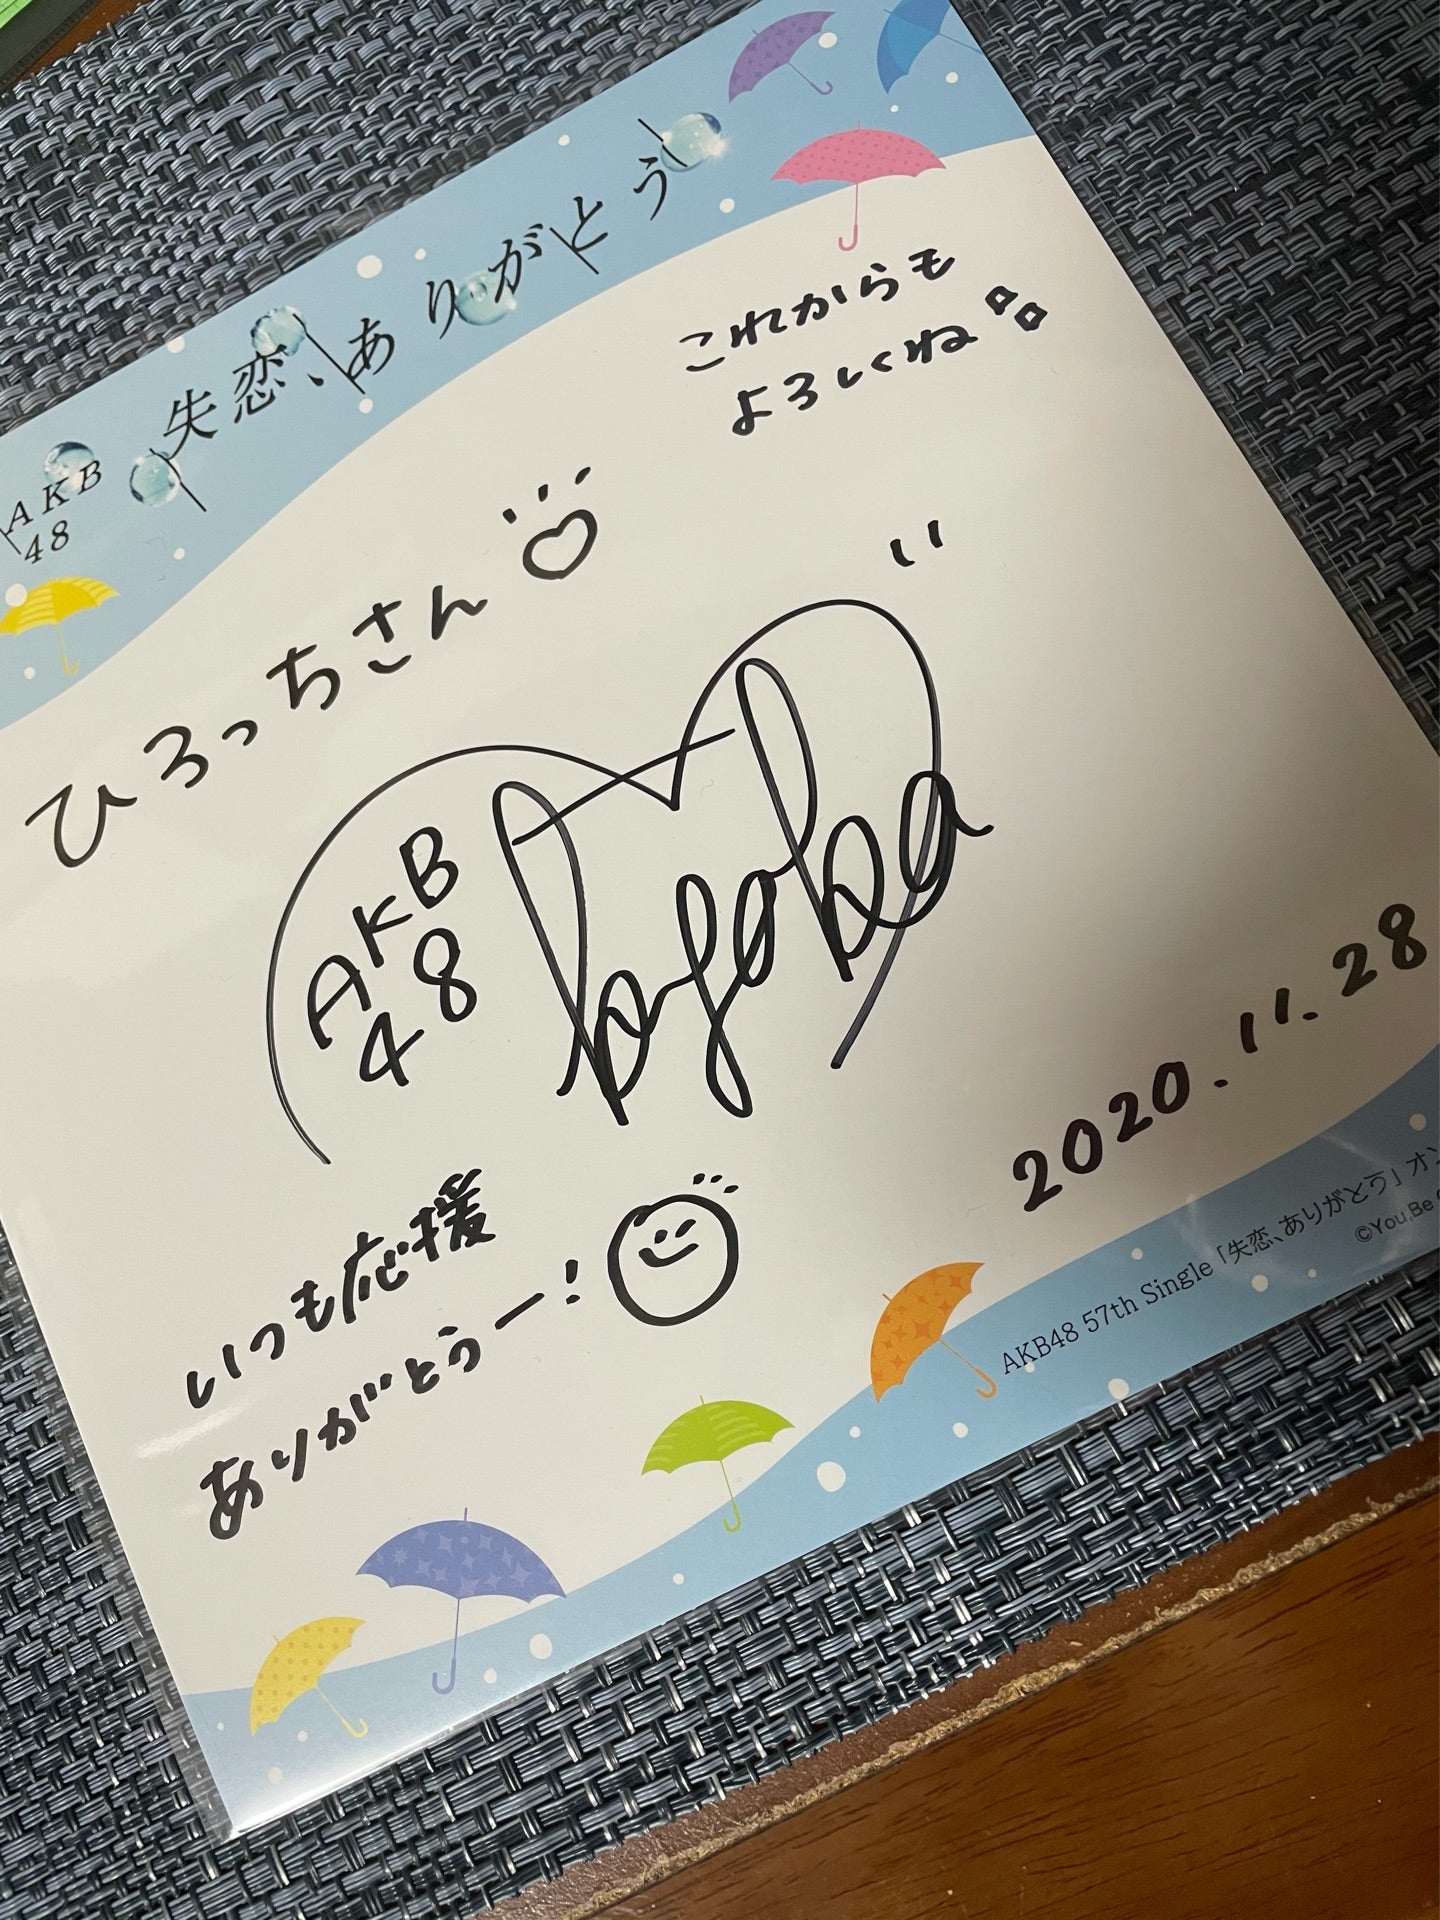 AKB
48
失恋、ありがとう
これからも
よろしくね
ひろっちさん
AKB
48
2020.11.28
いつも応援
ありがとうー!
AKB48 57th Single「失恋、ありがとう」オン
©You,Be